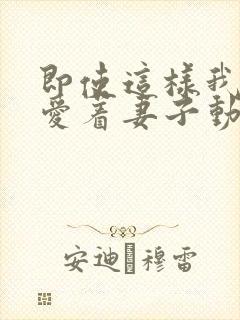 即使這樣我
愛着妻子動
安迪 穆雷